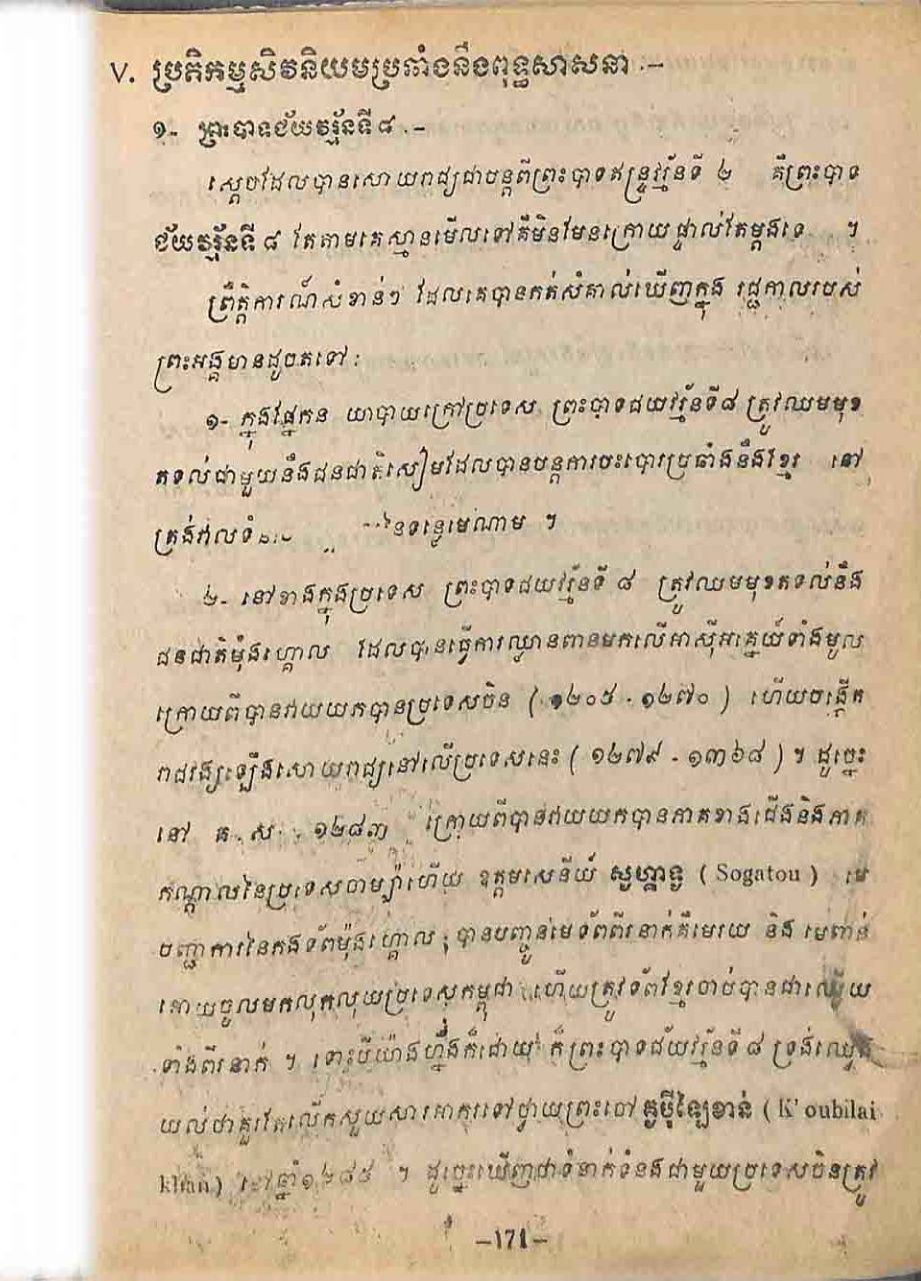 V. ប្រតិកម្មសិវនិយមប្រឆាំងនឹងពុទ្ធសាសនា :-
១- ព្រះបាទជ័យវរ្ម័នទី៨ .-
ស្តេចដែលបានសោយរាជ្យជាបន្តពីព្រះបាទឥន្ទ្រវរ្ម័នទី ២ គឺព្រះបាទ
ជ័យវរ្ម័នទី ៨ តែតាមគេស្មានមើលទៅគឺមិនមែនក្រោយផ្ទាល់តែម្តងទេ ។
ព្រឹត្តិការណ៍សំខាន់ៗ ដែលគេបានកត់សំគាល់ឃើញក្នុង រជ្ជកាលរបស់
ព្រះអង្គមានដូចតទៅ :
១- ក្នុងផ្នែកន យោបាយក្រៅប្រទេស ព្រះបាទជយវរ្ម័នទី៨ ត្រូវឈមមុខ
តទល់ជាមួយនឹងជនជាតិសៀមដែលបានបន្តការបះបោរប្រឆាំងនឹងខ្មែរ នៅ
ត្រង់វាលទំ នៃទន្លេមេណាម ។
២- នៅខាងក្នុងប្រទេស ព្រះបាទជយវរ្ម័នទី ៨ ត្រូវឈមមុខតទល់នឹង
ជនជាតិម៉ុងហ្គោល ដែលបានធ្វើការឈ្លានពានមកលើអាស៊ីអគ្នេយ៍ទាំងមូល
ក្រោយពីបានវាយយកបានប្រទេសចិន ( ១២០៥ - ១២៧០ ) ហើយបង្កើត
រាជវង្សឡើងសោយរាជ្យនៅលើប្រទេសនេះ ( ១២៧៩ - ១៣៦៨ ) ។ ដូច្នេះ
នៅ គ.ស. ១២៨៣ ក្រោយពីបានវាយយកបានភាគខាងជើងនិងភាគ
កណ្តាលនៃប្រទេសចាម្ប៉ាហើយ ឧត្តមសេនីយ៍ សូហ្គាទូ ( Sogatou ) មេ
បញ្ជាការនៃកងទ័ពម៉ុងហ្គោល បានបញ្ជូនមេទ័ពពីរនាក់គឺមេរយ និង មេពាន់
អោយចូលមកលុកលុយប្រទេសកម្ពុជា ហើយត្រូវទ័ពខ្មែរចាប់បានជាឈ្លើយ
ទាំងពីរនាក់ ។ ទោះបីយ៉ាងហ្នឹងក៏ដោយ ក៏ព្រះបាទជ័យវរ្ម័នទី ៨ ទ្រង់ឈ្វេង
យល់ថាគួរតែលើកសួយសារអាករទៅថ្វាយព្រះចៅ គូប៊ីឡៃខាន់ ( K'oubilai
khan ) នៅឆ្នាំ១២៨៥ ។ ដូច្នេះឃើញថាទំនាក់ទំនងជាមួយប្រទេសចិនត្រូវ
-171-